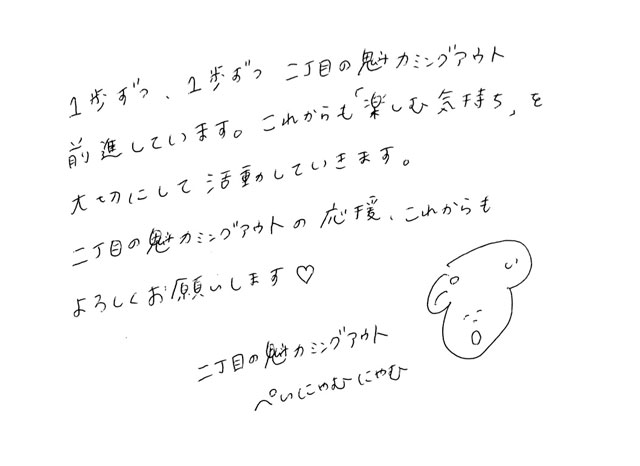 1歩ずつ、1歩ずつ 二丁目の魁カミングアウト
前進しています。これからも「楽しむ気持ち」を
大切にして活動していきます。
二丁目の魁カミングアウトの応援、これからも
よろしくお願いします♡
二丁目の魁カミングアウト
ぺいにゃむにゃむ